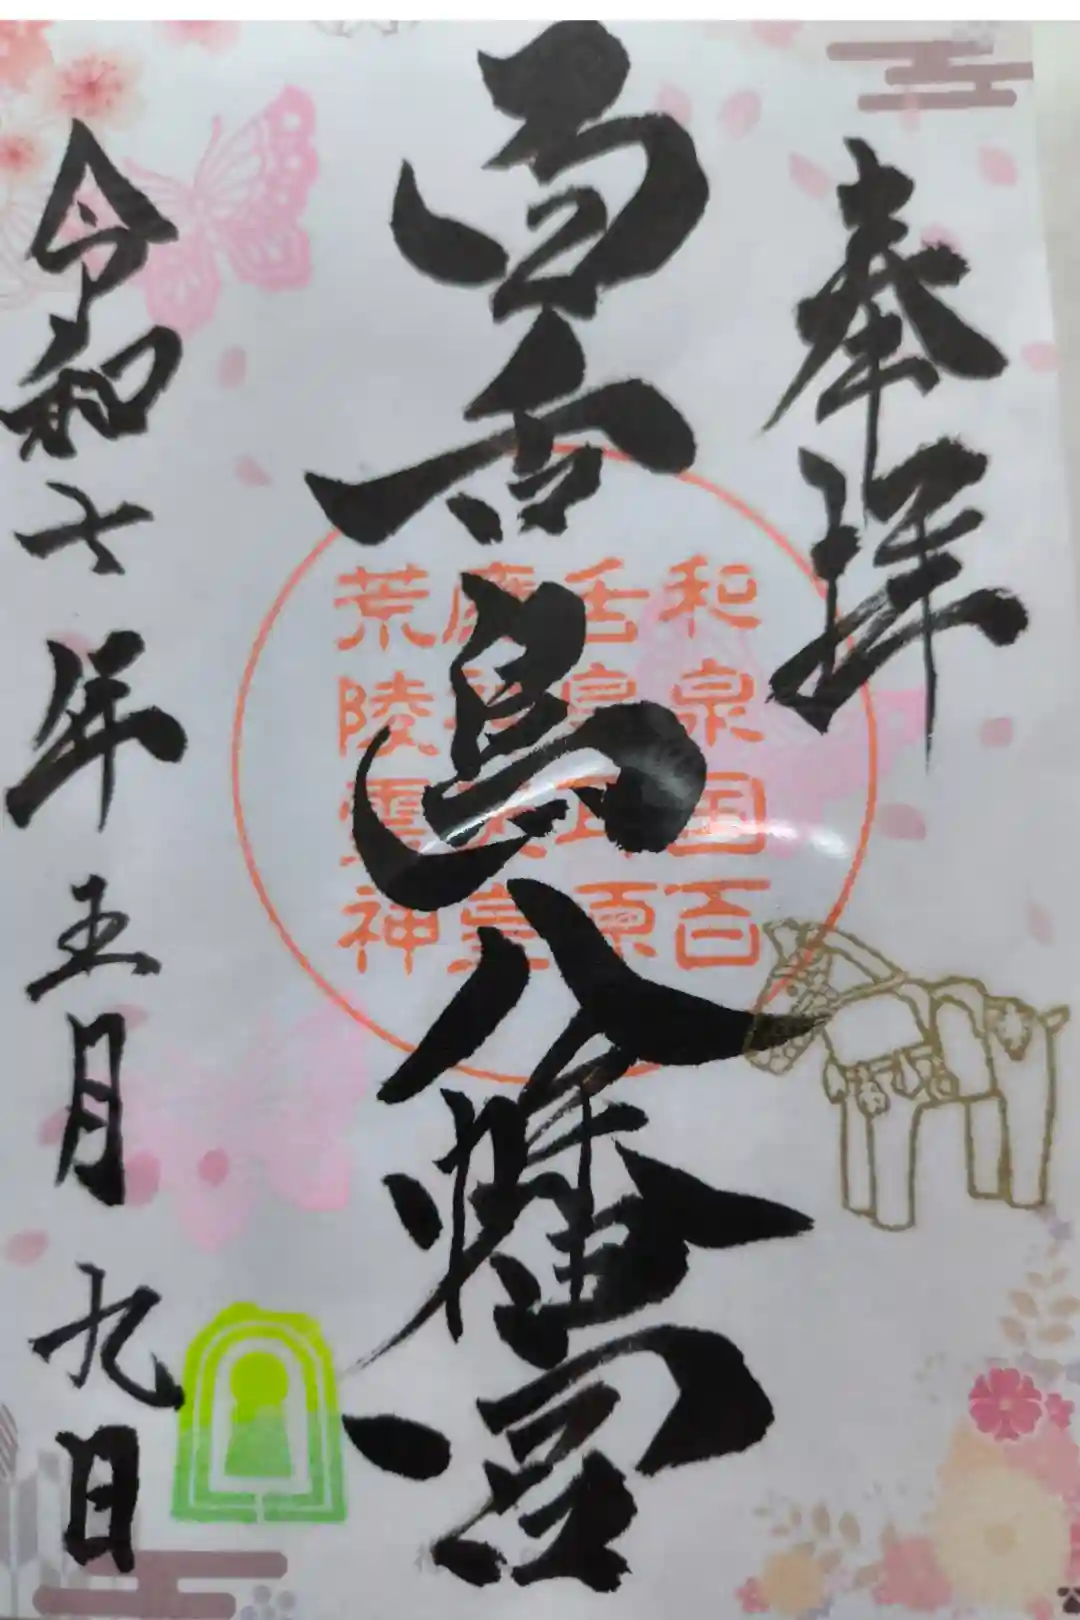 奉拝
百舌鳥八幡宮
和泉国百
舌鳥
原
荒陵
神
令和七年五月九日